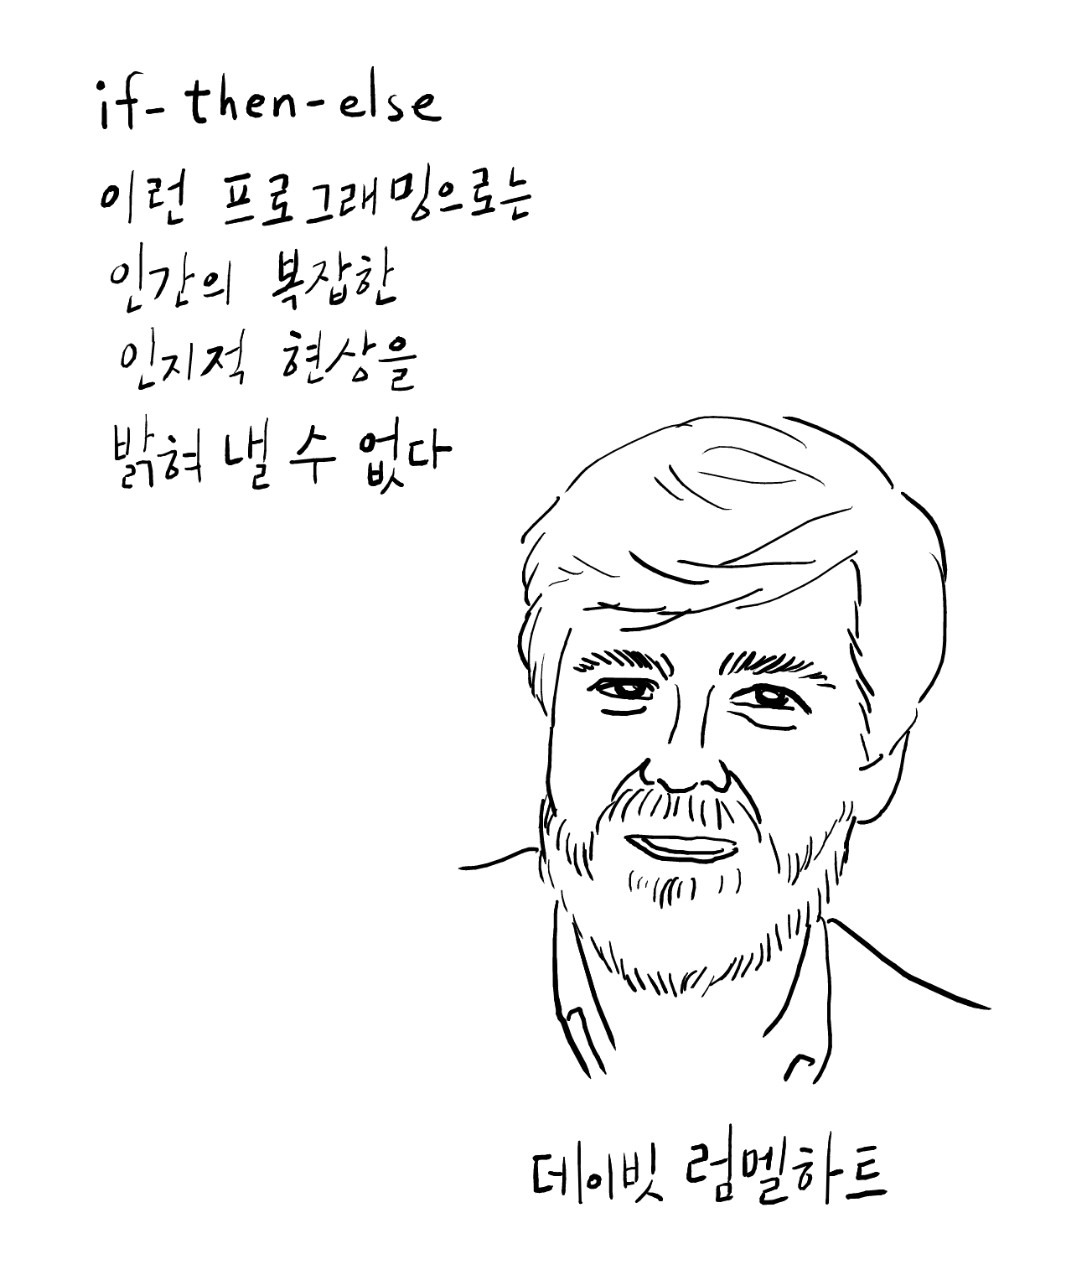 if-then-else
이런 프로그래밍으로는
인간의 복잡한
인지적 현상을
밝혀 낼 수 없다
데이빗 럼멜하트